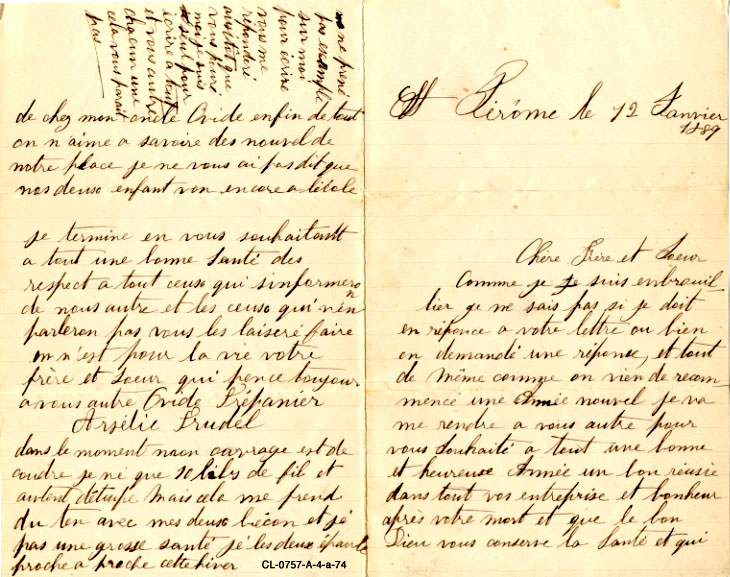 St Jérôme le 12 Janvier
1889
Chère Frère et Soeur
Comme je suis enbrouil
lier je ne sais pas si je doit
en réponce a votre lettre ou bien
en demandé une réponse, et tout
de même comme on vien de recom
mencé une Année nouvel je va
me rendre a vous autre pour
vous souhaité a tout une bonne
et heureuse Année un bon réussie
dans tout vos entreprise et bonheur
après votre mort et que le bon
Dieu vous conserve la Santé et qui
de chez mon oncle Ovide enfin de tout
on n'aime a savoire des nouvel de
notre place je ne vous ai pas dit que
nos deuso enfant von encore a lécole
je termine en vous souhaitant
a tout une bonne Santé des
respect a tout ceuso qui s'informeron
de nous autre et les ceuso qui n'en
parleron pas vous les laiseré faire
on n'est pour la vie votre
frère et Soeur qui pence toujour
a vous autre Ovide Trépanier
Arsélie Trudel
dans le moment mon ouvrage est de
coudre je né que 10 lbs de fil et
autent détoupe Mais cela me prend
du ten avec mes deuso et jé
pas une grosse santé jé les deux épaule
proche a proche cette hiver
ne prené
pas exemple
sur moi
pour écrire
vous me
réponderé
aussitot que
vous pouré
moi je suis
seul pour
écrire a tout
et vous autre
chacun une
cela vous parait
pas
CL-0757-A-4-a-74